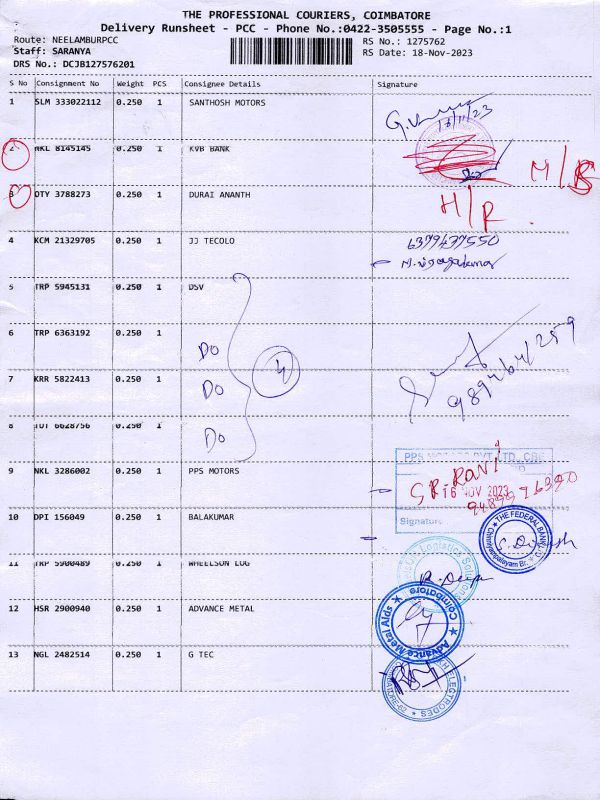 THE PROFESSIONAL COURIERS, COIMBATORE
Delivery Runsheet - PCC - Phone No.:0422-3505555 - Page No.:1
Route: NEELAMBURPCC RS No.: 1275762
Staff: SARANYA RS Date: 18-Nov-2023
DRS No.: DCJB127576201
S No Consignment No Weight PCS Consignee Details Signature
1 SLM 333022112 0.250 1 SANTHOSH MOTORS
2 NKL 8145145 0.250 1 KVB BANK
H/S
3 OTY 3788273 0.250 1 DURAI ANANTH
H/R
4 KCM 21329705 0.250 1 JJ TECOLO 6379437550
5 TRP 5945131 0.250 1 DSV
6 TRP 6363192 0.250 1
Do
7 KRR 5822413 0.250 1 Do 4
8 0.250 1 Do
9 NKL 3286002 0.250 1 PPS MOTORS
SR. RANI
16 NOV 2023
Signature
10 DPI 156049 0.250 1 BALAKUMAR
THE FEDERAL BANK
11 TRP 5900489 0.250 1 WHEELSON LOG
Logistics Solutions
R. Deepa
12 HSR 2900940 0.250 1 ADVANCE METAL
Advance Metal Alps
Coimbatore
13 NGL 2482514 0.250 1 G TEC
ELECTRODES